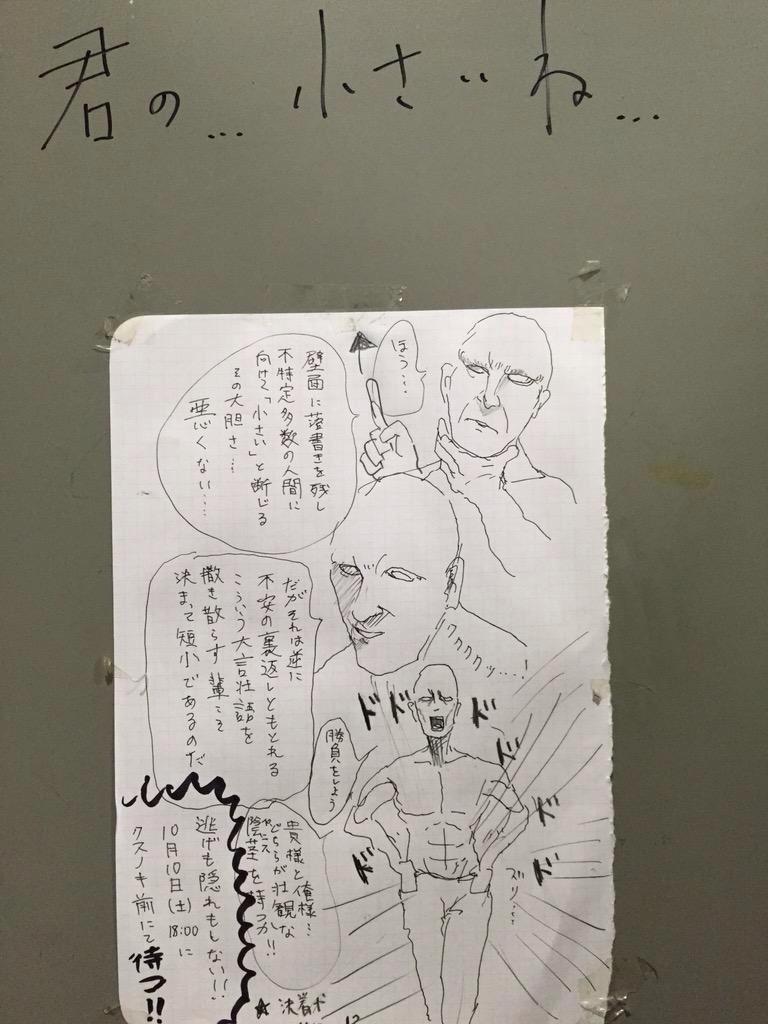 君の…小さいね…
ほう…
壁面に落書きを残し
不特定多数の人間に
向けて「小さい」と断じる
その大胆さ…
悪くない…
だがそれは逆に
不安の裏返しともとれる
こういう大言壮語を
撒き散らす輩こそ
決まって短小であるのだ
クククッ…!
勝負をしよう
ドドドドドドド
ズリッ…
貴様と俺様…
どちらが壮観な
陰茎を持つか!!
ペニス
逃げも隠れもしない!!
10月10日(土)18:00に
クスノキ前にて待つ!!
★決着